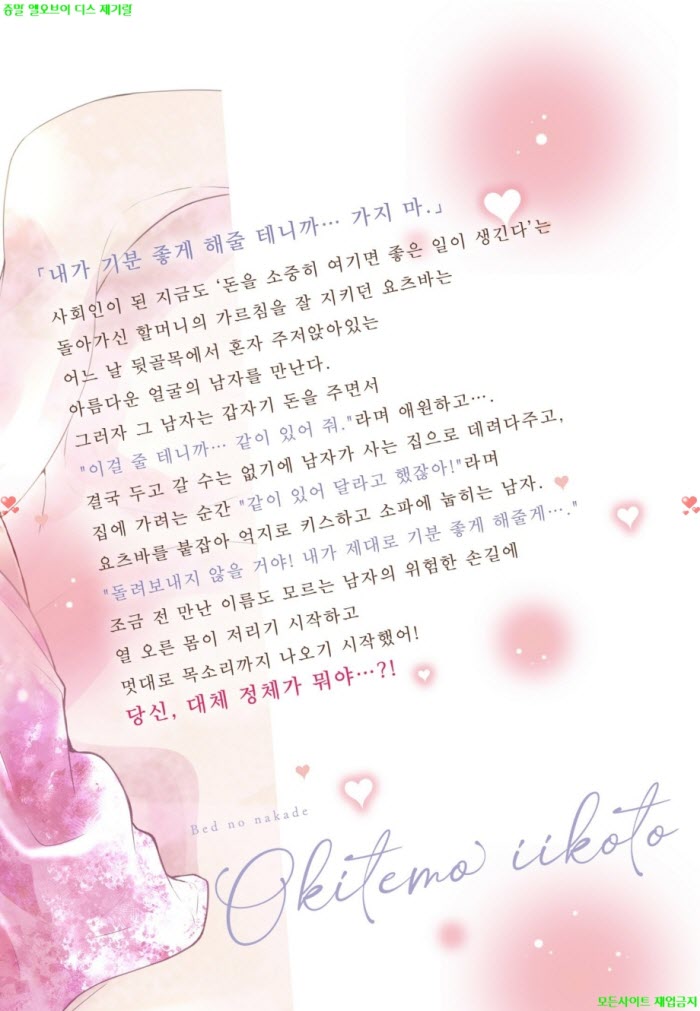 즘말 엘오브이 디스 제기럴
「내가 기분 좋게 해줄 테니까… 가지 마.」
사회인이 된 지금도 ‘돈을 소중히 여기면 좋은 일이 생긴다’는
돌아가신 할머니의 가르침을 잘 지키던 요츠바는
어느 날 뒷골목에서 혼자 주저앉아있는
아름다운 얼굴의 남자를 만난다.
그러자 그 남자는 갑자기 돈을 주면서
"이걸 줄 테니까… 같이 있어 줘."라며 애원하고….
결국 두고 갈 수는 없기에 남자가 사는 집으로 데려다주고,
집에 가려는 순간 "같이 있어 달라고 했잖아!"라며
요츠바를 붙잡아 억지로 키스하고 소파에 눕히는 남자.
"돌려보내지 않을 거야! 내가 제대로 기분 좋게 해줄게…."
조금 전 만난 이름도 모르는 남자의 위험한 손길에
열 오른 몸이 저리기 시작하고
멋대로 목소리까지 나오기 시작했어!
당신, 대체 정체가 뭐야…?!
Bed no nakade
Okitemo iikoto
모든사이트 재업금지